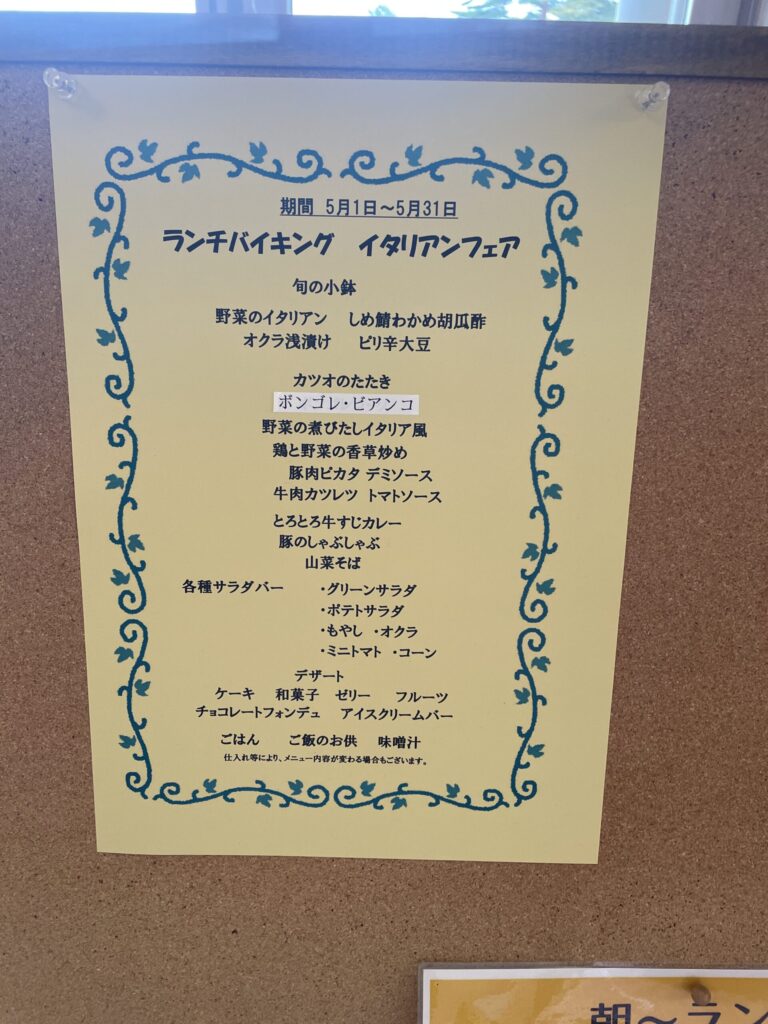 期間 5月1日～5月31日
ランチバイキング イタリアンフェア
旬の小鉢
野菜のイタリアン しめ鯖わかめ胡瓜酢
オクラ浅漬け ピリ辛大豆
カツオのたたき
ボンゴレ・ビアンコ
野菜の煮びたしイタリア風
鶏と野菜の香草炒め
豚肉ピカタ デミソース
牛肉カツレツ トマトソース
とろとろ牛すじカレー
豚のしゃぶしゃぶ
山菜そば
各種サラダバー ・グリーンサラダ
・ポテトサラダ
・もやし ・オクラ
・ミニトマト ・コーン
デザート
ケーキ 和菓子 ゼリー フルーツ
チョコレートフォンデュ アイスクリームバー
ごはん ご飯のお供 味噌汁
仕入れ等により、メニュー内容が変わる場合もございます。
朝～ラン